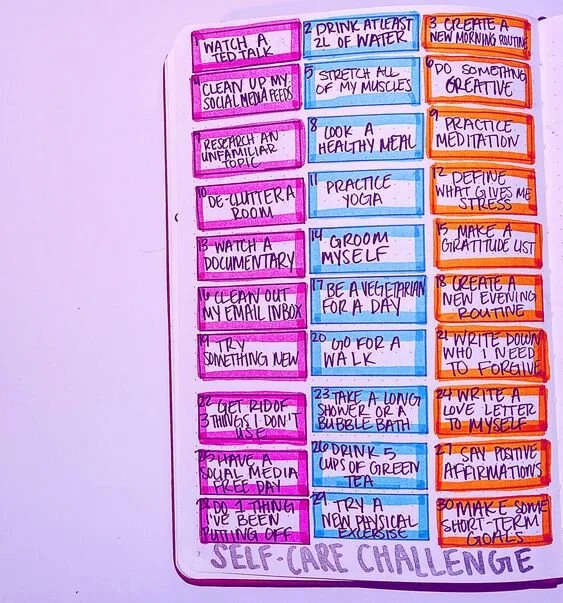 1 WATCH A
TED TALK
2 DRINK AT LEAST
2L OF WATER
3 CREATE A
NEW MORNING ROUTINE
4 CLEAN UP MY
SOCIAL MEDIA FEEDS
5 STRETCH ALL
OF MY MUSCLES
6 DO SOMETHING
CREATIVE
7 RESEARCH AN
UNFAMILIAR
TOPIC
8 COOK A
HEALTHY MEAL
9 PRACTICE
MEDITATION
10 DE-CLUTTER A
ROOM
11 PRACTICE
YOGA
12 DEFINE
WHAT GIVES ME
STRESS
13 WATCH A
DOCUMENTARY
14 GROOM
MYSELF
15 MAKE A
GRATITUDE LIST
16 CLEAN OUT
MY EMAIL INBOX
17 BE A VEGETARIAN
FOR A DAY
18 CREATE A
NEW EVENING
ROUTINE
19 TRY
SOMETHING NEW
20 GO FOR A
WALK
21 WRITE DOWN
WHO I NEED
TO FORGIVE
22 GET RID OF
3 THINGS I DON'T
USE
23 TAKE A LONG
SHOWER OR A
BUBBLE BATH
24 WRITE A
LOVE LETTER
TO MYSELF
25 HAVE A
SOCIAL MEDIA
FREE DAY
26 DRINK 5
CUPS OF GREEN
TEA
27 SAY POSITIVE
AFFIRMATIONS
28 DO 1 THING
I'VE BEEN
PUTTING OFF
29 TRY A
NEW PHYSICAL
EXCERSISE
30 MAKE SOME
SHORT-TERM
GOALS
SELF-CARE CHALLENGE